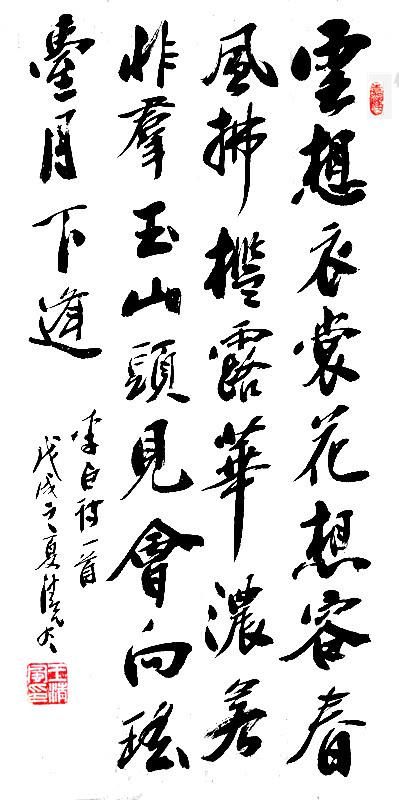 雲想衣裳花想容春
風拂檻露華濃若
非羣玉山頭見會向瑤
臺月下逢
李白詩一首
戊戌之夏